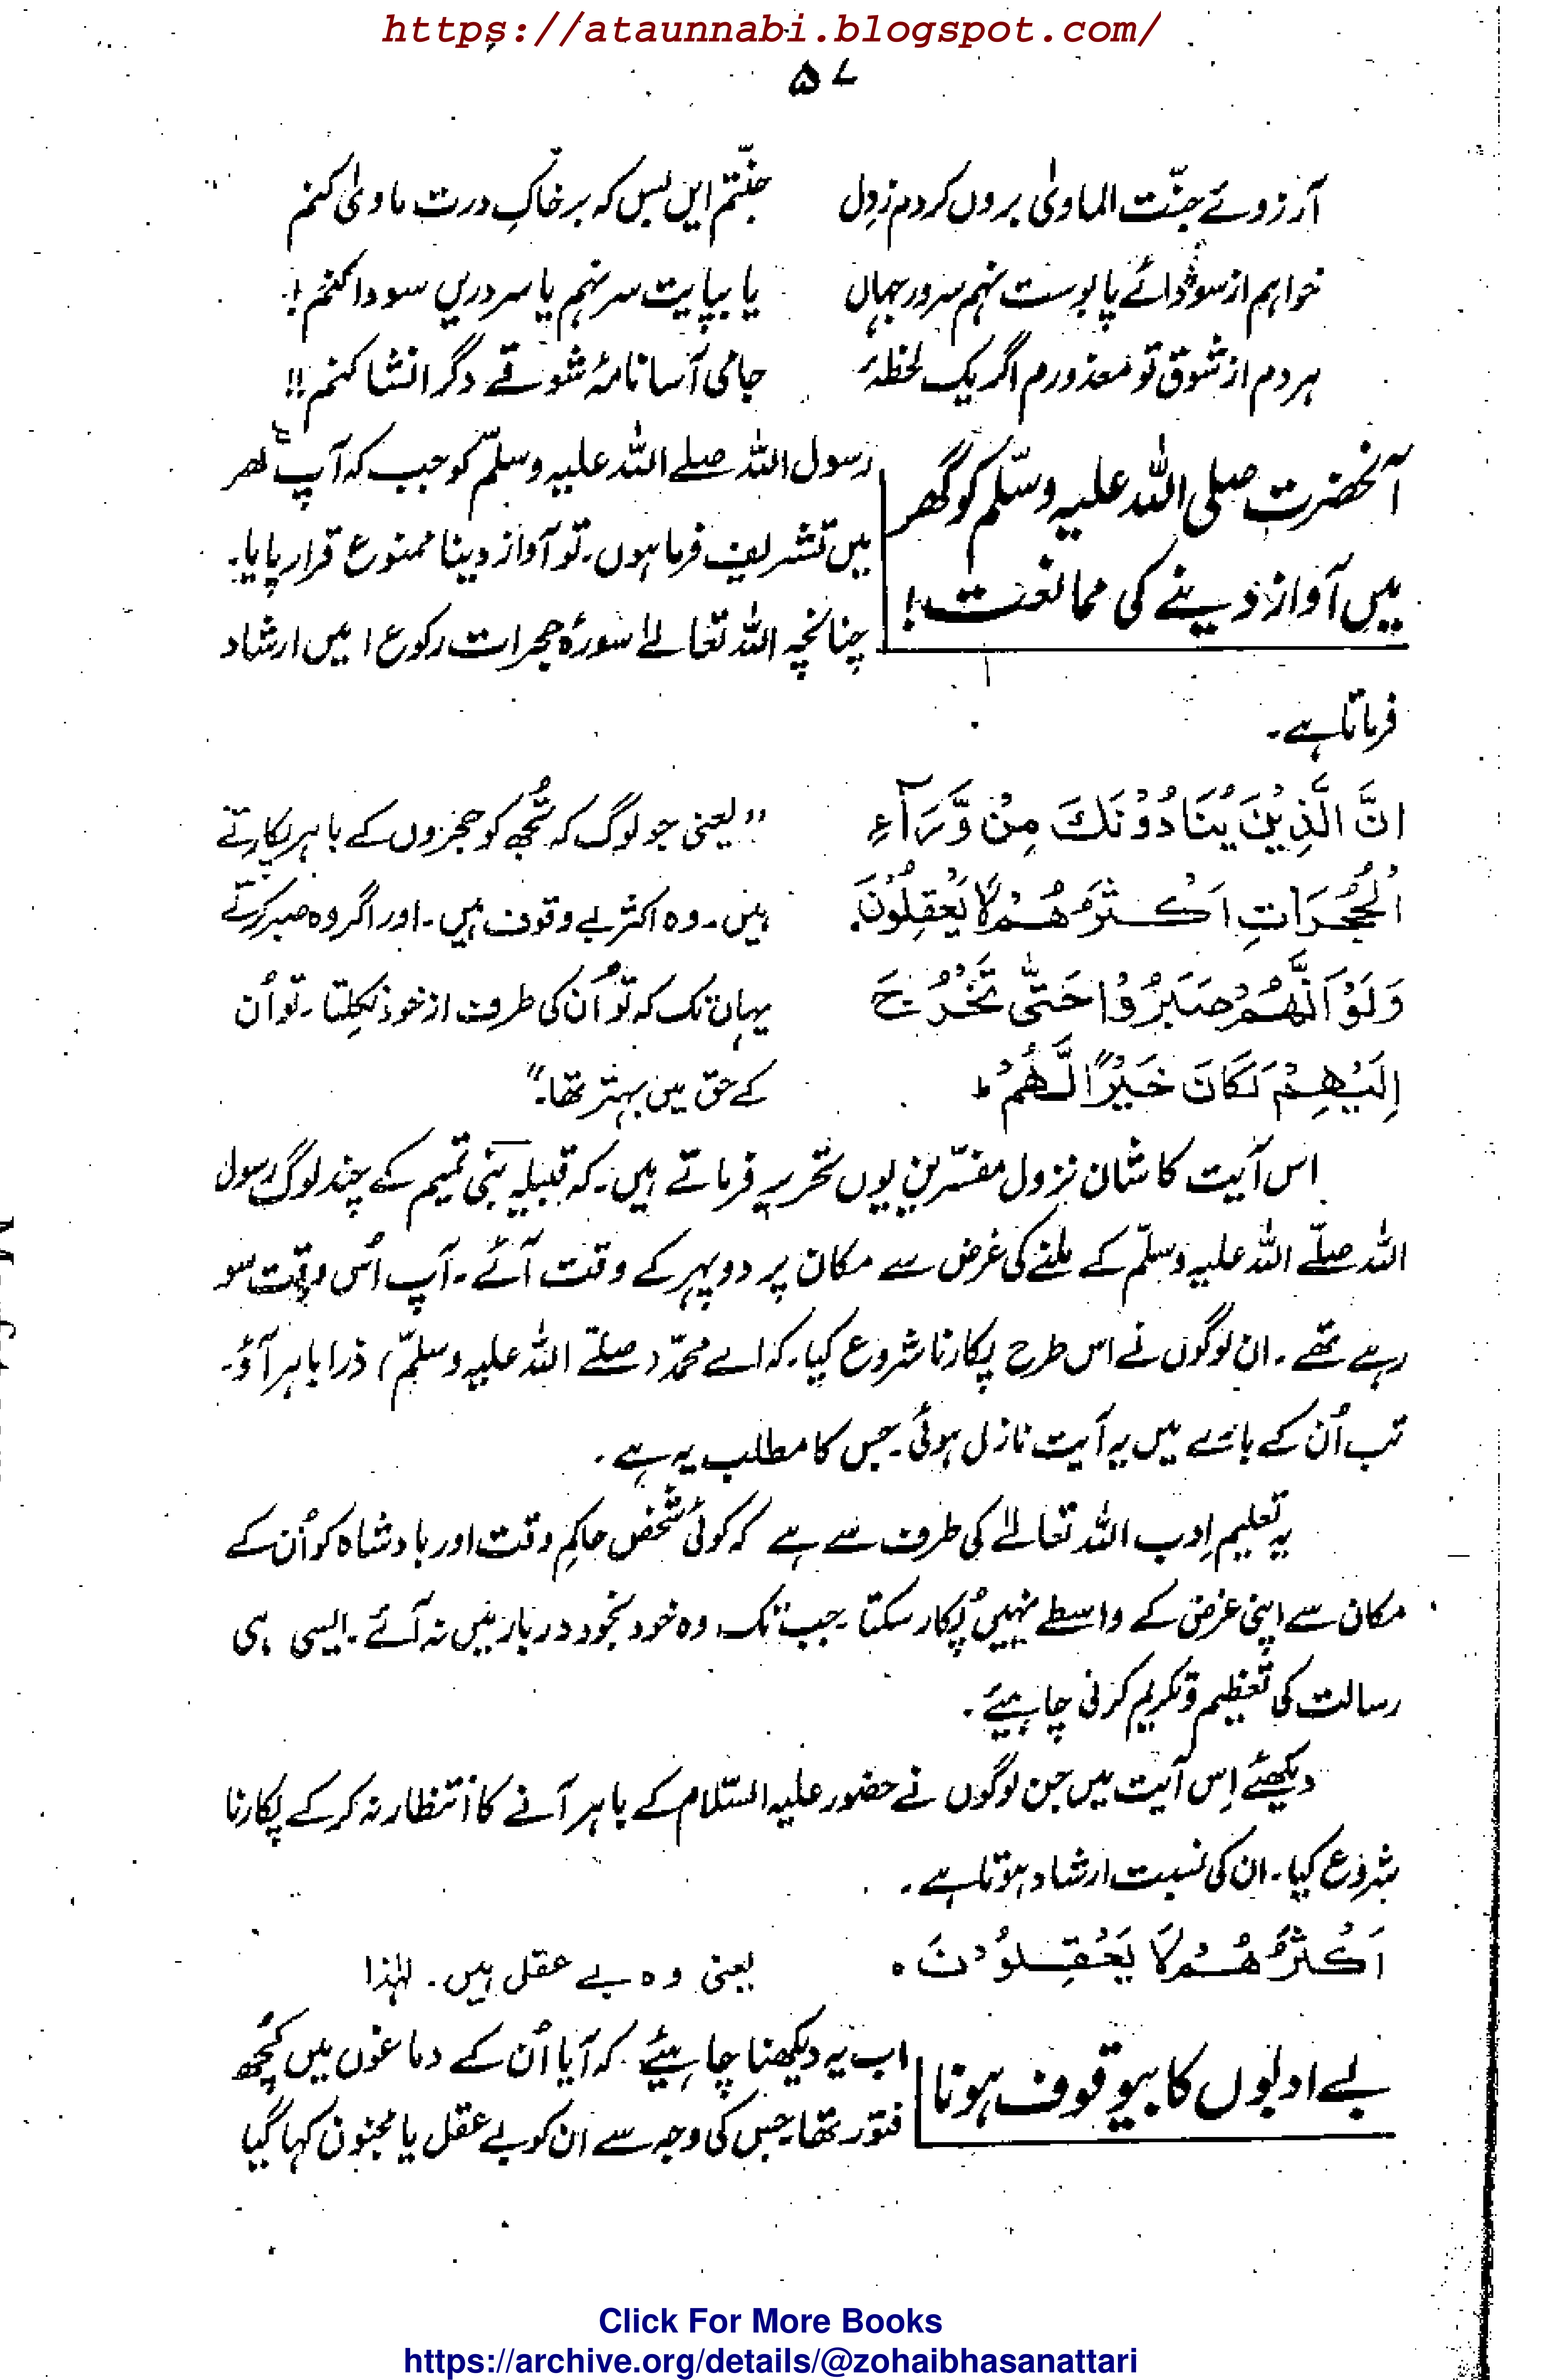 https://ataunnabi.blogspot.com/
۵۷
آرزوئے جنّت الماویٰ بروں کردم زدِل جنّتم ایں بس کہ بر خاکِ درت ماویٰ کنم
خواہم از سودائے پا بوست نہم سر در جہاں یا بپایت سر نہم یا سر دریں سودا کنم!
ہر دم از شوق تو معذورم اگر یک لحظۂ جامی آسا نامۂ شوقے دگر انشا کنم!!
آنحضرت صلی اللہ علیہ وسلّم کو گھر
میں آواز دینے کی ممانعت!
رسول اللہ صلے اللہ علیہ وسلّم کو جب کہ آپ گھر
میں تشریف فرما ہوں۔ تو آواز دینا ممنوع قرار پایا۔
چنانچہ اللہ تعالےٰ سورۂ حجرات رکوع ۱ میں ارشاد
فرماتا ہے۔
اِنَّ الَّذِیْنَ یُنَادُوْنَكَ مِنْ وَّرَآءِ
الْحُجُرَاتِ اَكْثَرُهُمْ لَا یَعْقِلُوْنَ.
وَلَوْ اَنَّهُمْ صَبَرُوْا حَتّٰی تَخْرُجَ
اِلَیْهِمْ لَكَانَ خَیْرًا لَّهُمْ ط
"یعنی جو لوگ کہ تُجھ کو حجروں کے باہر پکارتے
ہیں۔ وہ اکثر بے وقوف ہیں۔ اور اگر وہ صبر کرتے
یہاں تک کہ تُو اُن کی طرف از خود نکلتا۔ تو اُن
کے حق میں بہتر تھا۔"
اس آیت کا شان نزول مفسّرین یوں تحریر فرماتے ہیں۔ کہ قبیلہ بنی تمیم کے چند لوگ رسول
اللہ صلّے اللہ علیہ وسلّم کے ملنے کی غرض سے مکان پر دوپہر کے وقت آئے۔ آپ اُس وقت سو
رہے تھے۔ ان لوگوں نے اس طرح پکارنا شروع کیا۔ کہ اے محمدّ (صلّے اللہ علیہ وسلّم) ذرا باہر آؤ۔
تب اُن کے بارے میں یہ آیت نازل ہوئی۔ جس کا مطلب یہ ہے۔
یہ تعلیم ادب اللہ تعالےٰ کی طرف سے ہے کہ کوئی شخص حاکمِ وقت اور بادشاہ کو اُن کے
مکان سے اپنی غرض کے واسطے نہیں پُکار سکتا۔ جب تک وہ خود بخود دربار میں نہ آئے۔ ایسی ہی
رسالت کی تعظیم و تکریم کرنی چاہیئے۔
دیکھئے اِس آیت میں جن لوگوں نے حضور علیہ السّلام کے باہر آنے کا انتظار نہ کر کے پکارنا
شروع کیا۔ ان کی نسبت ارشاد ہوتا ہے۔
اَكْثَرُهُمْ لَا یَعْقِلُوْنَ ہ یعنی وہ بے عقل ہیں۔ لہٰذا
بے ادبوں کا بیوقوف ہونا
اب یہ دیکھنا چاہیئے۔ کہ آیا اُن کے دماغوں میں کُچھ
فتور تھا۔ جس کی وجہ سے ان کو بے عقل یا مجنون کہا گیا
Click For More Books
https://archive.org/details/@zohaibhasanattari